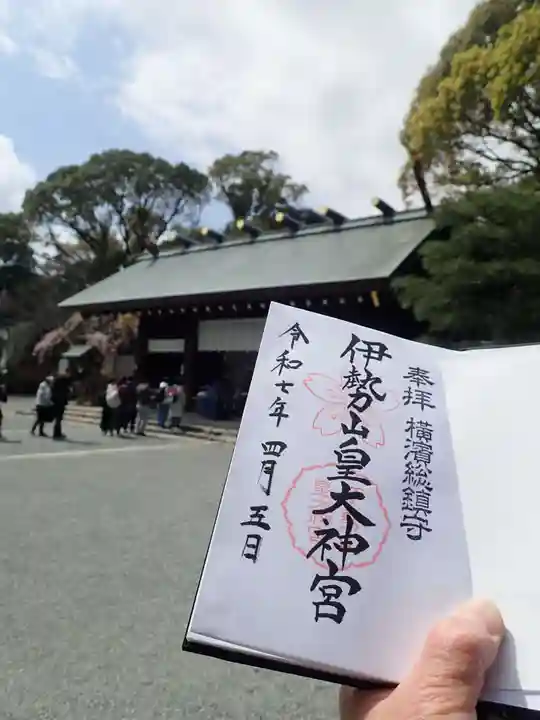 奉拝 横濱総鎮守
伊勢山皇大神宮
令和七年 四月 五日